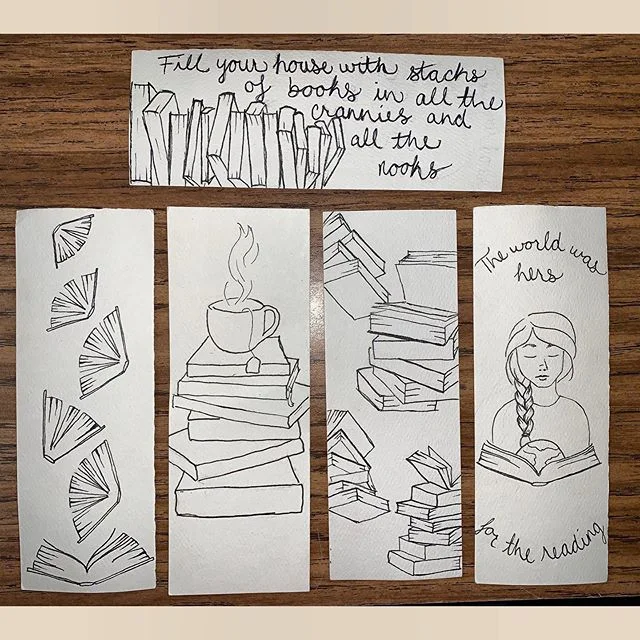 Fill your house with stacks
of books in all the
crannies and
all the
nooks
The world was
hers
for the reading